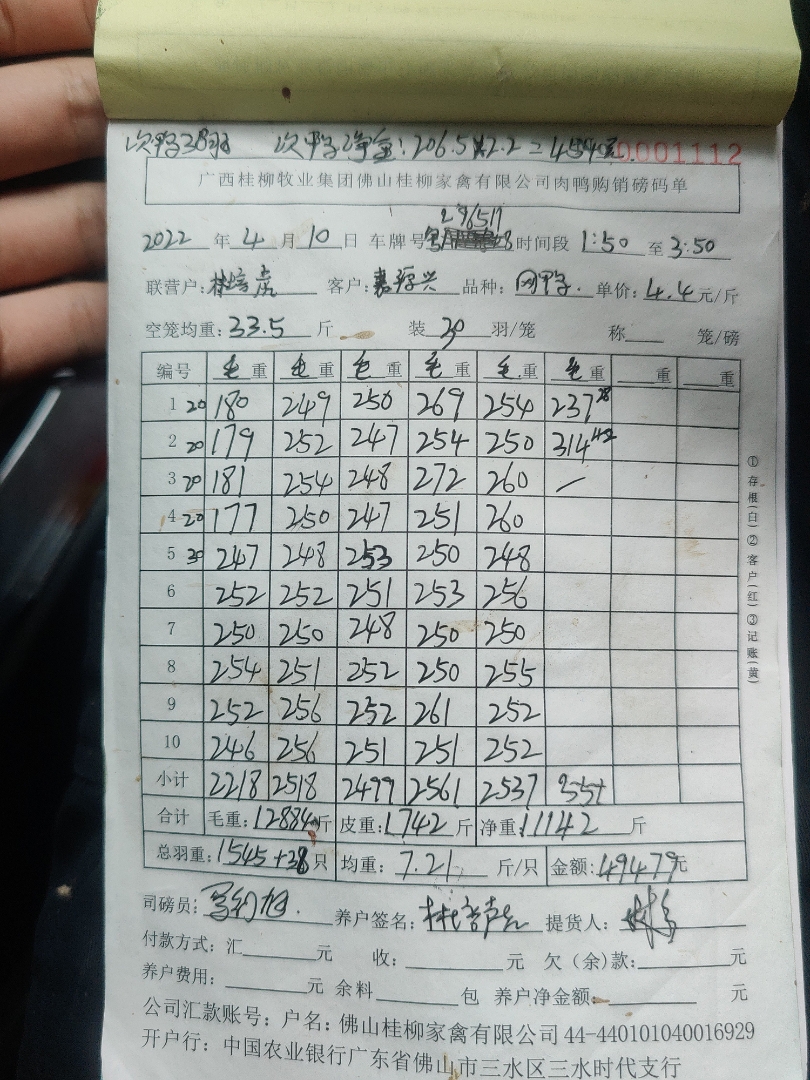 次鸭38只 次鸭净重:206.5×2.2=454元. 0001112
广西桂柳牧业集团佛山桂柳家禽有限公司肉鸭购销磅码单
29651
2022 年 4 月 10 日 车牌号 时间段 1:50 至 3:50
联营户: 客户: 品种: 单价:4.4元/斤
空笼均重:33.5 斤 装 30 羽/笼 称 笼/磅
编号 毛重 毛重 毛重 毛重 毛重 毛重 重 重
1 20 180 249 250 269 254 237 28
2 20 179 252 247 254 250 314 42
3 20 181 254 248 272 260 /
4 20 177 250 247 251 260
5 30 247 248 253 250 248
6 252 252 251 253 256
7 250 250 248 250 250
8 254 251 252 250 255
9 252 256 252 261 252
10 246 256 251 251 252
小计 2218 2518 2499 2561 2537 551
合计 毛重:12884斤 皮重:1742斤 净重:11142 斤
总羽重:1545+38只 均重:7.21 斤/只 金额:49479元
司磅员: 养户签名: 提货人:
付款方式:汇 元 收: 元 欠(余)款: 元
养户费用: 元 余料 包 养户净金额: 元
公司汇款账号:户名:佛山桂柳家禽有限公司44-440101040016929
开户行:中国农业银行广东省佛山市三水区三水时代支行
①存根(白)②客户(红)③记账(黄)